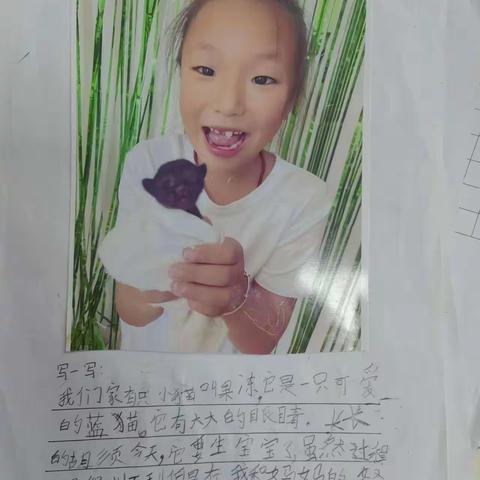 写一写:
我们家有只小猫叫果冻,它是一只可爱
的蓝猫。它有大大的眼睛。长长
的胡须今天,它要生宝宝了,虽然过程
我和妈妈的